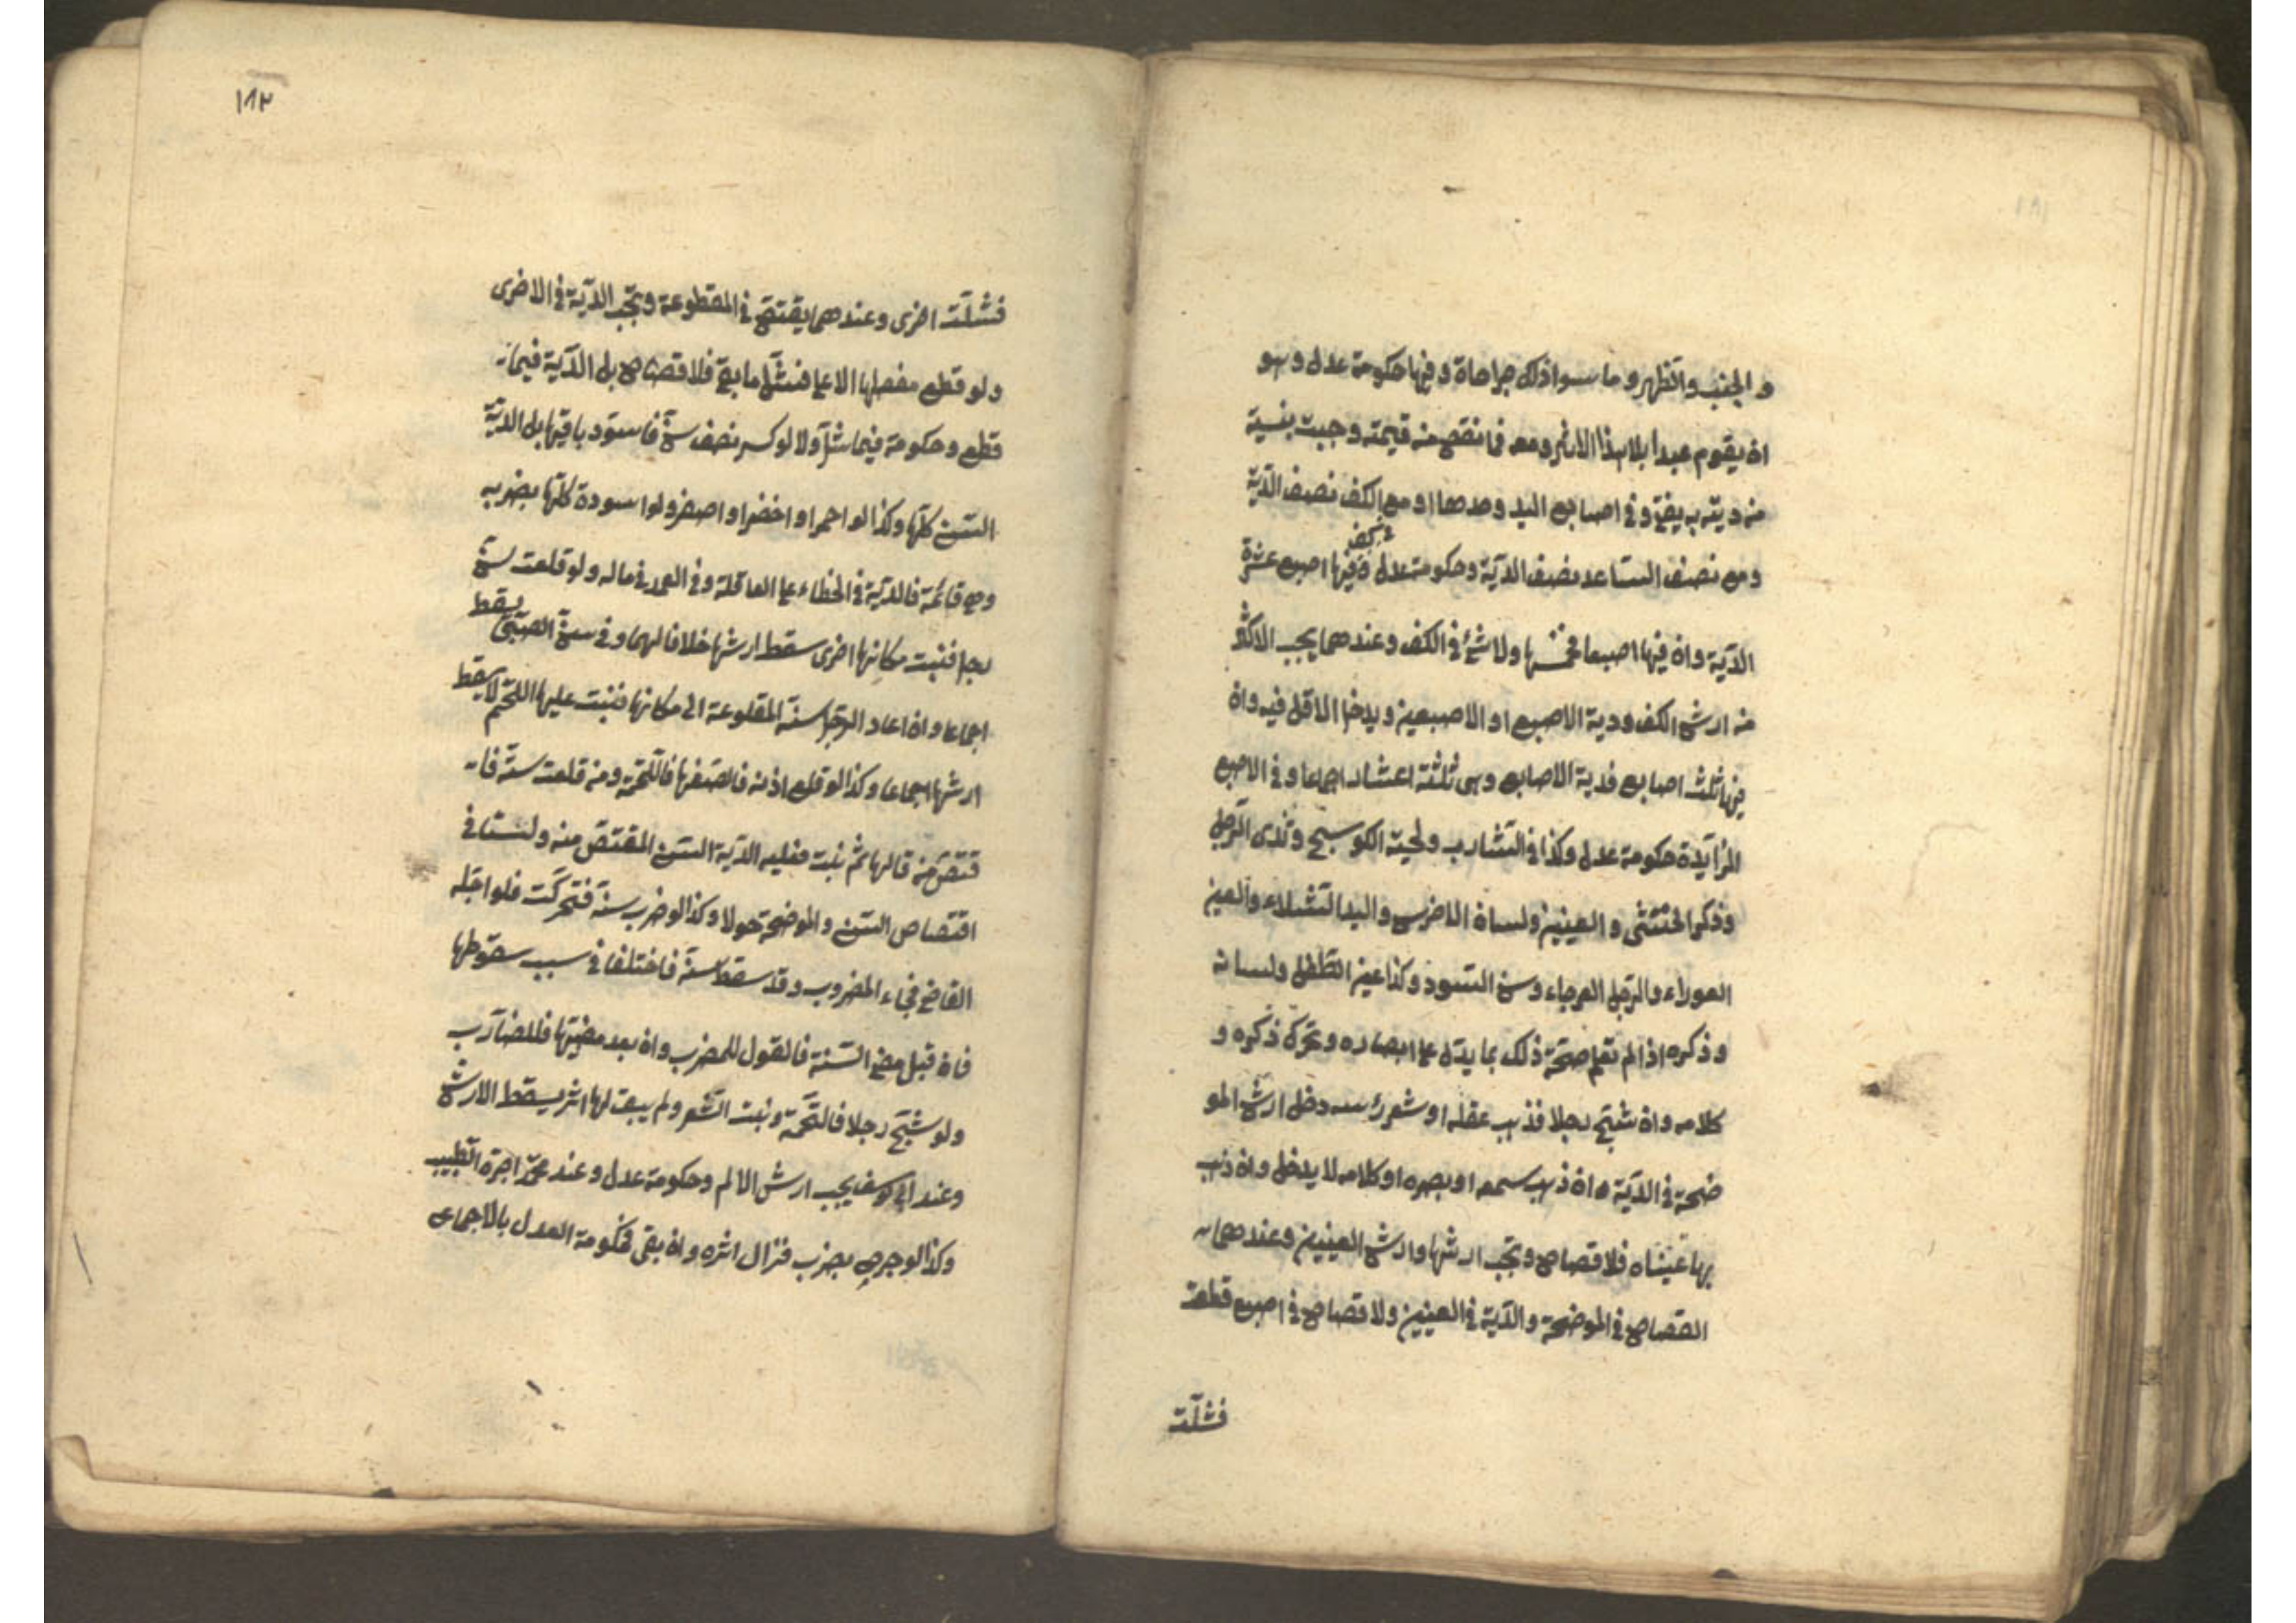 ١٨١
والجنب والظهر وما سوا ذلك جراحاة وفيها حكومة عدل وهو
ان يقوم عبدا بلا هذا الاثر ومعه فما نقص منه قيمته وجبت بنسبة
منه ديته به يفتى وفى اصابع اليد وحدها او مع الكف نصف الدّية
ومع نصف الساعد نصف الدّية وحكومة عدل وفى كف فيها اصبع عشر
الدّية وان فيها اصبعا فخمسها ولا شئ فى الكف وعندهما يجب الاكثر
منه ارش الكف ودية الاصبع او الاصبعين ويدخل الاقل فيه وان
فيها ثلث اصابع فدية الاصابع وهى ثلثة اعشار اجماعا وفى الاصبع
الزّايدة حكومة عدل وكذا فى الشّارب ولحية الكوسج وثدى الرّجل
وذكر الخنثى والعينين ولسان الاخرس واليد الشّلاء والعين
العوراء والرّجل العرجاء وسن السّود وكذا عين الطّفل ولسانه
وذكره اذا لم تعلم صحّة ذلك بما يدّل على ابصاره وتحرك ذكره و
كلامه وان شجّ رجلا فذهب عقله او شعر رئسه دخل ارش المو
ضحة فى الدّية وان ذهب سمعه او بصره او كلامه لا يدخل وان ذهب
بها عيناه فلا قصاص وتجب ارشها وارش العينين وعندهما
القصاص فى الموضحة والدّية فى العينين ولا قصاص فى اصبع قطعت
فشلّت
١٨٢
فشلّت اخرى وعندهما يقتصّ فى المقطوعة وتجب الدّية فى الاخرى
ولو قطع مفصلها الاعلى فشلّ ما بقى فلا قصاص بل الدّية فيما
قطع وحكومة فيما شلّ ولا لو كسر نصف سنّ فاسودّ باقيها بل الديّة
السّن كلّها وكذا لو احمر او اخضر او اصفر ولو اسودة كلّها بضربه
وهى قائمة فالدّية فى الخطاء على العاقلة وفى العمد فى ماله ولو قلعت سنّ
رجل فنبت مكانها اخرى سقط ارشها خلافا لهما وفى سنّ الصبىّ يسقط
اجماعا وان اعاد الرّجل سنّه المقلوعة الى مكانها فنبت عليها اللّحم لا يسقط
ارشها اجماعا وكذا لو قلع اذنه فالصقها فالتحمة ومنه قلعت سنّه فا
قتصّ منه قالها ثم نبت فعليه الدّية السّن المقتصّ منه ولستا فى
اقتصاص السّن والموضحة حولا وكذا لو ضرب سنّه فتحركت فلو اجّله
القاضى فجاء المضروب وقد سقط سنّه فاختلفا فى سبب سقوطها
فان قبل مضى السّنة فالقول للمضرب وان بعد مضيّها فللضارّب
ولو شجّ رجلا فالتحمة ونبت الشّعر ولم يبق لها اثر يسقط الارش
وعند ابى يوسف يجب ارش الالم وحكومة عدل وعند محمّد اجرة الطّبيب
وكذا لو جرح بضرب فزال اثره وان بقى فحكومة العدل بالاجماع